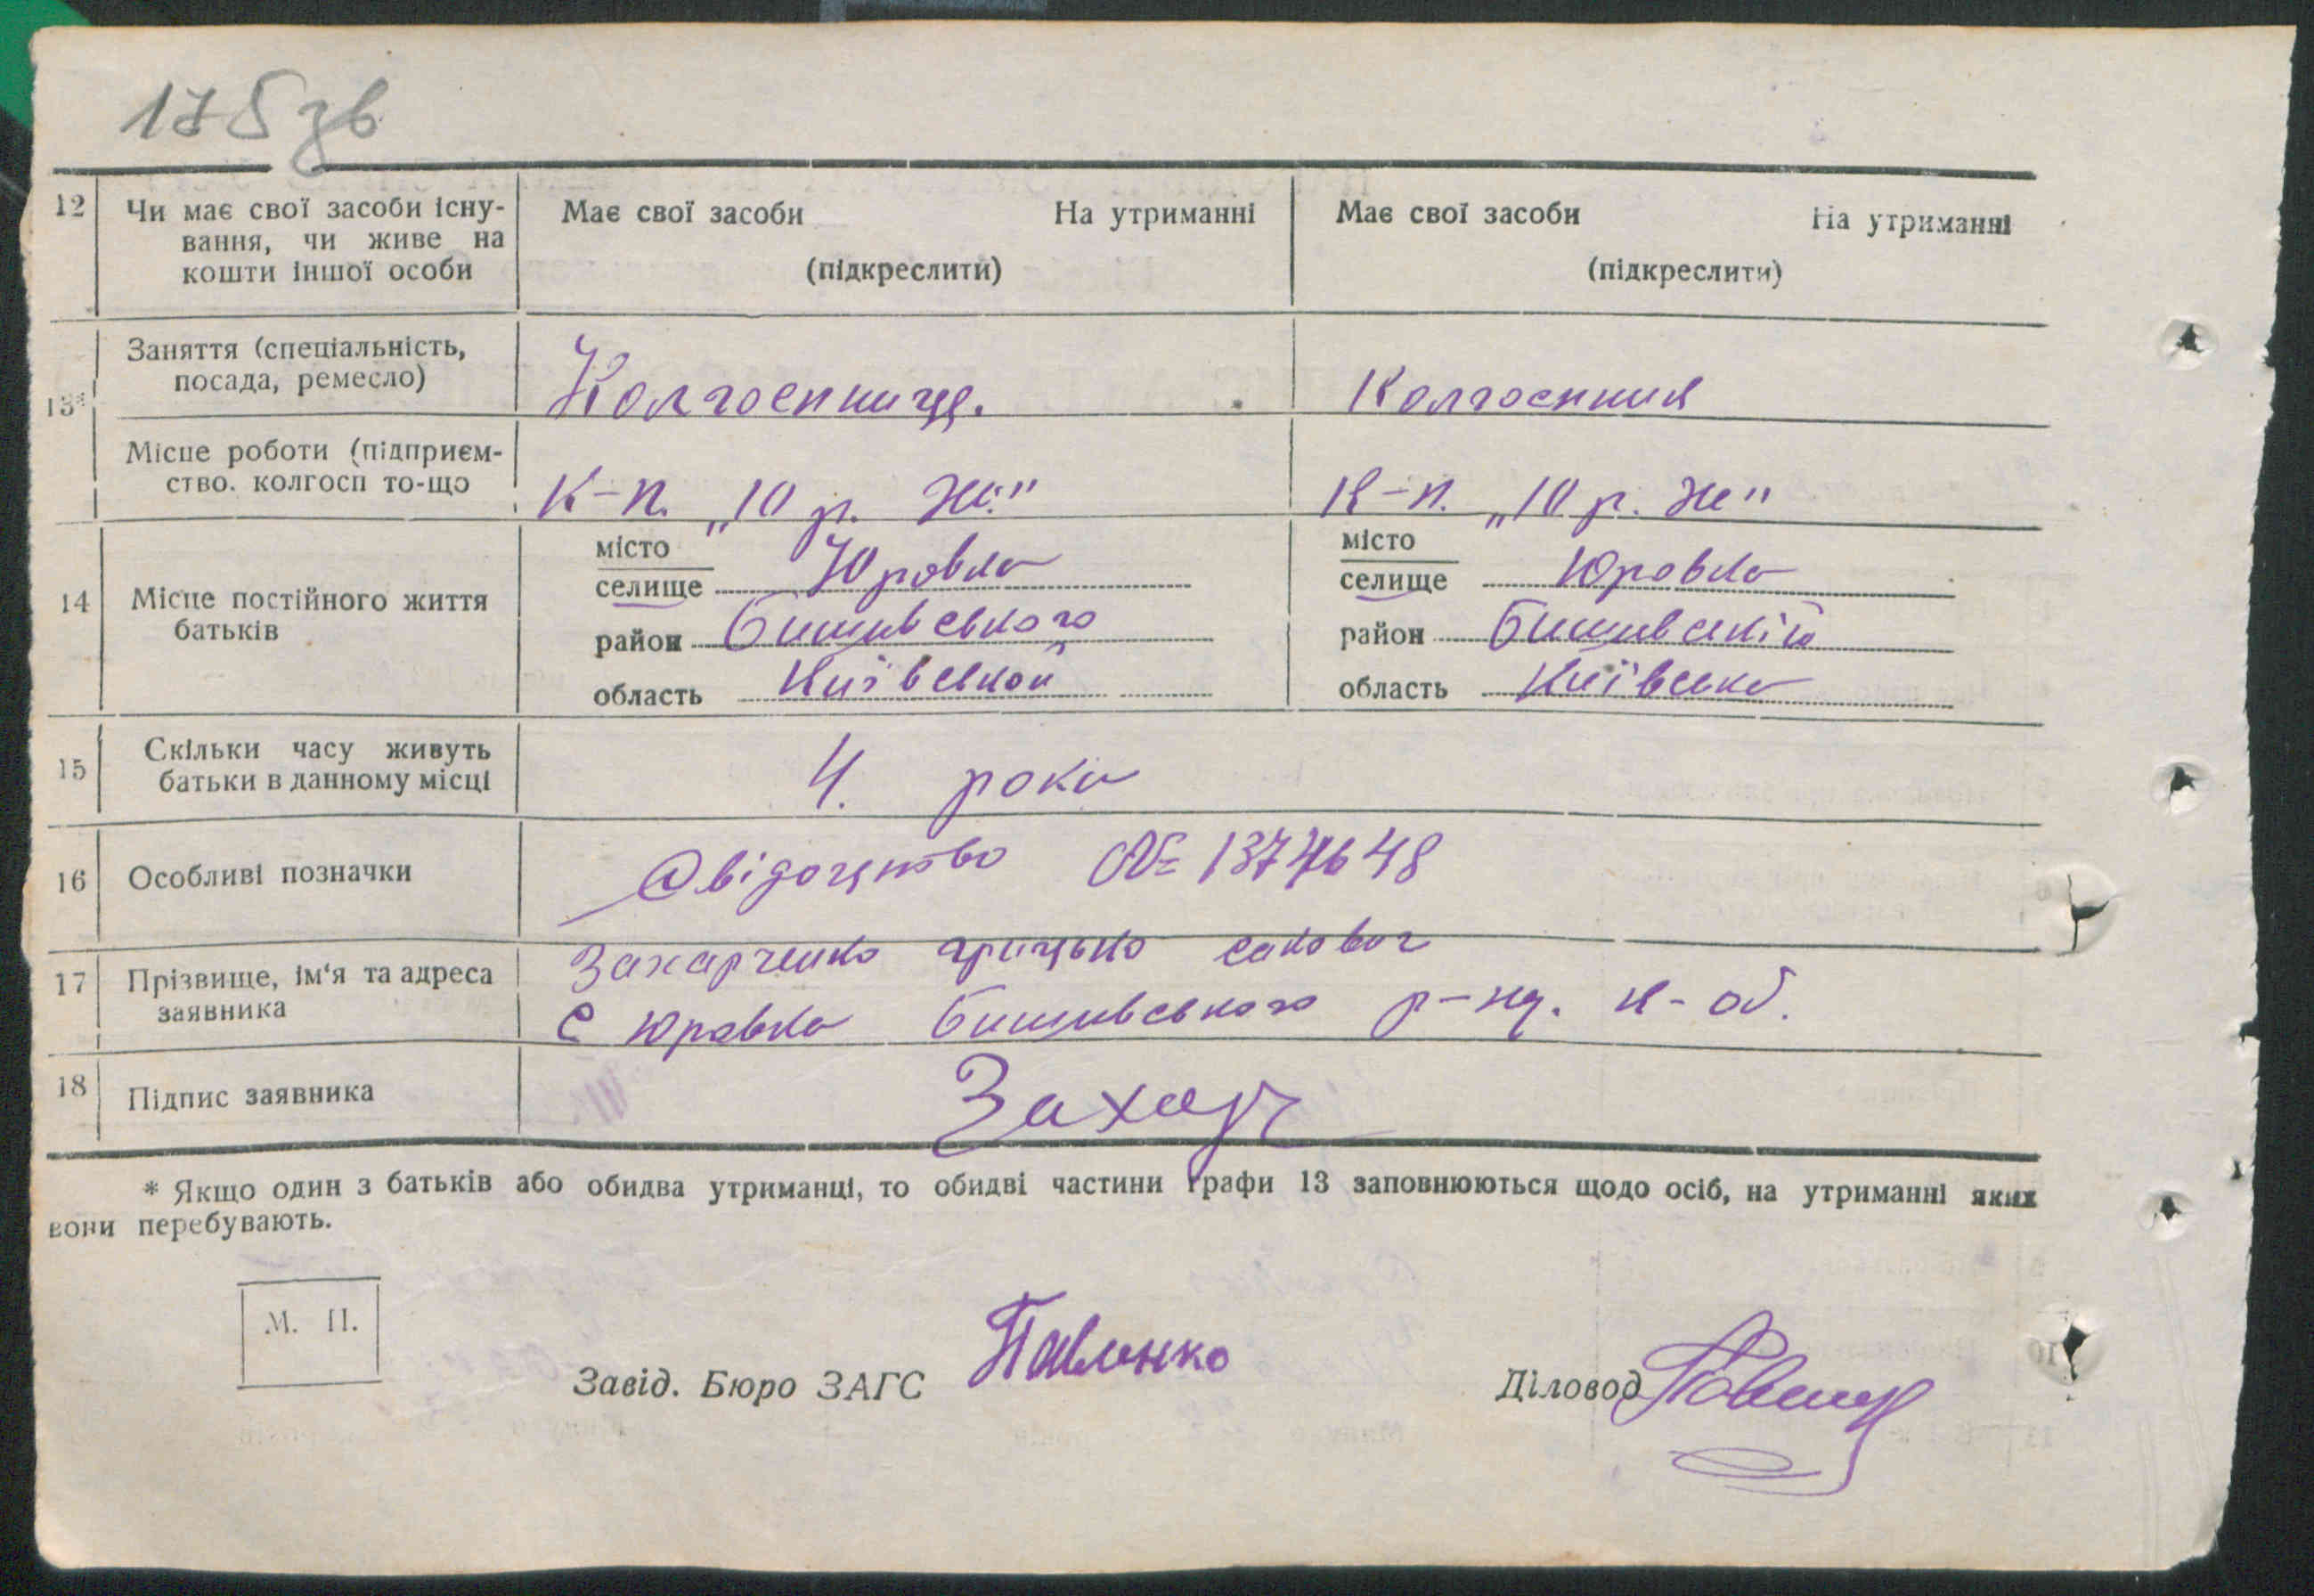 175 зв
12 Чи має свої засоби існу- Має свої засоби На утриманні Має свої засоби На утриманні
вання, чи живе на
кошти іншої особи (підкреслити) (підкреслити)
13* Заняття (спеціальність,
посада, ремесло) Колгоспниця. Колгоспник
Місце роботи (підприєм-
ство. колгосп то-що К-п. „10 р. Ж." К-п. „10 р. Ж"
14 Місце постійного життя
батьків
місто місто
селище Юровка селище Юровка
район Бишивського район Бишивский
область Київськой область Київська
15 Скільки часу живуть
батьки в данному місці 4. роки
16 Особливі позначки Свідоцтво №
17 Прізвище, ім'я та адреса Захарченко грицько
заявника С Юровка Бишивського р-ну. К-об.
18 Підпис заявника Захарч
* Якщо один з батьків або обидва утриманці, то обидві частини графи 13 заповнюються щодо осіб, на утриманні яких
вони перебувають.
М. П.
Завід. Бюро ЗАГС Павленко Діловод